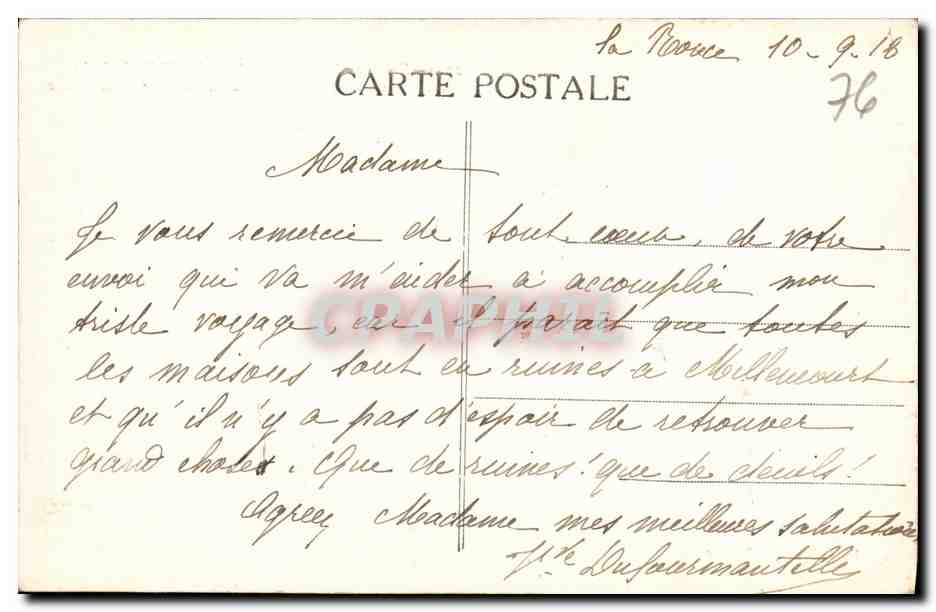 la 10-9-18
76
CARTE POSTALE
Madame
Je vous remercie de tout cœur, de votre
envoi qui va m'aider à accomplir mon
triste voyage, car il parait que toutes
les maisons sont en ruines à Millencourt
et qu'il n'y a pas d'espoir de retrouver
grand chose. Que de ruines! que de deuils!
Agréez Madame mes meilleures salutations
Vve Dufourmantelle
CPAPHIL